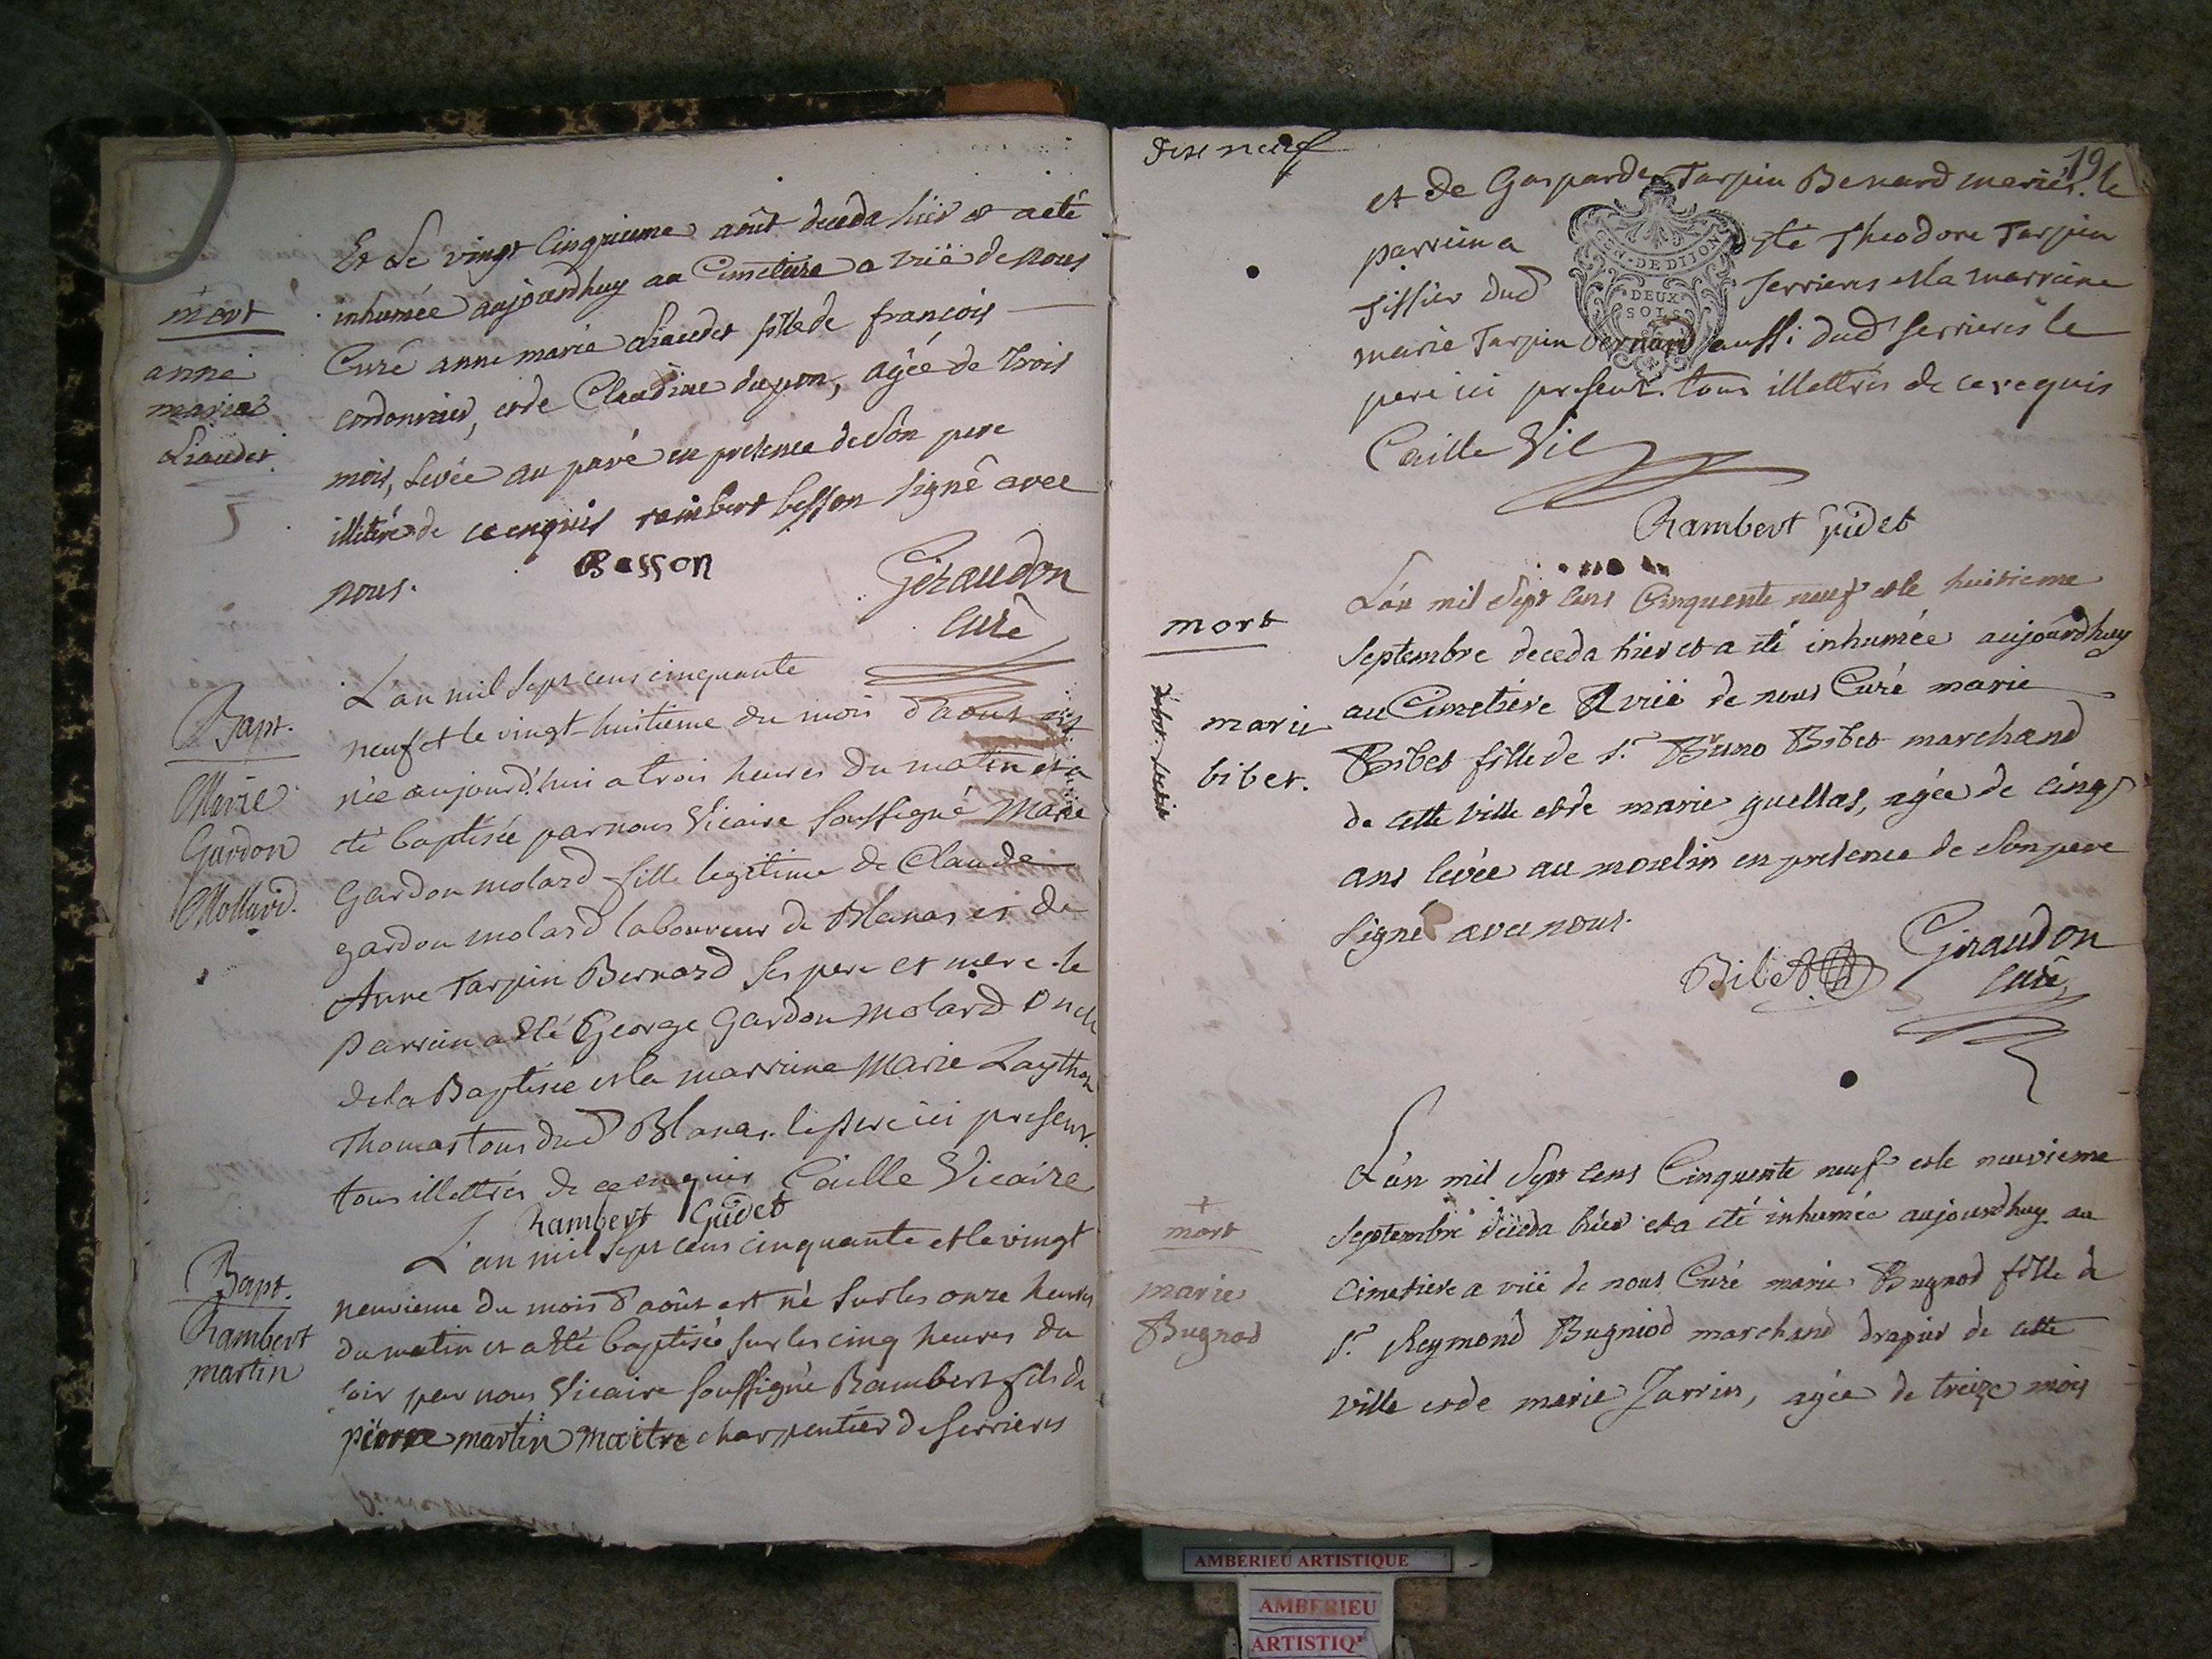 mort
anne
marie
Liaudet
Et Le vingt Cinquieme août deceda hier et a eté
inhumée aujourdhuy au Cimetiere a vüe de nous
Curé anne marie Liaudet fille de francois
cordonnier, et de Claudine dupon, agée de trois
mois, Levée au pavé en presence de Son pere
illitéré de ce enquis raimbert besson signé avec
nous.
Besson
Giraudon
curé
Bapt.
Marie
Gardon
Mollard.
L'an mil sept cens cinquante
neuf et le vingt-huitieme du mois d'aout est
née aujourd'hui a trois heures du matin et a
eté baptisée par nous Vicaire soussigné Marie
Gardon molard fille legitime de Claude
gardon molard laboureur de Blanas et de
Anne Tarpin Bernard ses pere et mere. le
Parrain a eté George Gardon Molard oncle
de la Baptisée et la marraine Marie
Thomas tous dud Blanas. le pere ici present.
tous illettrés de ce enquis Caille Vicaire
Rambert Gudet
Bapt.
Rambert
martin
L'an mil sept cens cinquante et le vingt
neuvieme du mois d'août est né sur les onze heures
du matin et a eté baptisé sur les cinq heures du
soir par nous Vicaire soussigné Rambert fils de
pierre martin maitre charpentier de serrieres
dix neuf
19
et de Gasparde Tarpin Benard mariés. le
parrain a eté Theodore Tarpin
Tissier dud serrieres et la marraine
marie Tarpin bernard aussi dud serrieres le
pere ici present. tous illettrés de ce requis
Caille Vic
Rambert Gudet
mort
marie
bibet.
L'an mil Sept Cens Cinquante neuf et le huitieme
Septembre deceda hier et a eté inhumée aujourdhuy
au Cimetiere a vüe de nous Curé marie
Bibet fille de s.r Bruno Bibet marchand
de cette ville et de marie guellas, agée de cinq
ans levée au moulin en presence de Son pere
Signé avec nous.
Bibet
Giraudon
curé
mort
marie
Bugnod
L'an mil Sept Cens Cinquante neuf et le neuvieme
Septembre deceda hier et a eté inhumée aujourdhuy au
cimetiere a vüe de nous Curé marie Bugnod fille de
s.r Reymond Bugniod marchand drapier de cette
ville et de marie Jarrin, agée de treize mois
GEN. DE DIJON
DEUX
SOLS
AMBERIEU ARTISTIQUE
AMBERIEU
ARTISTIQ